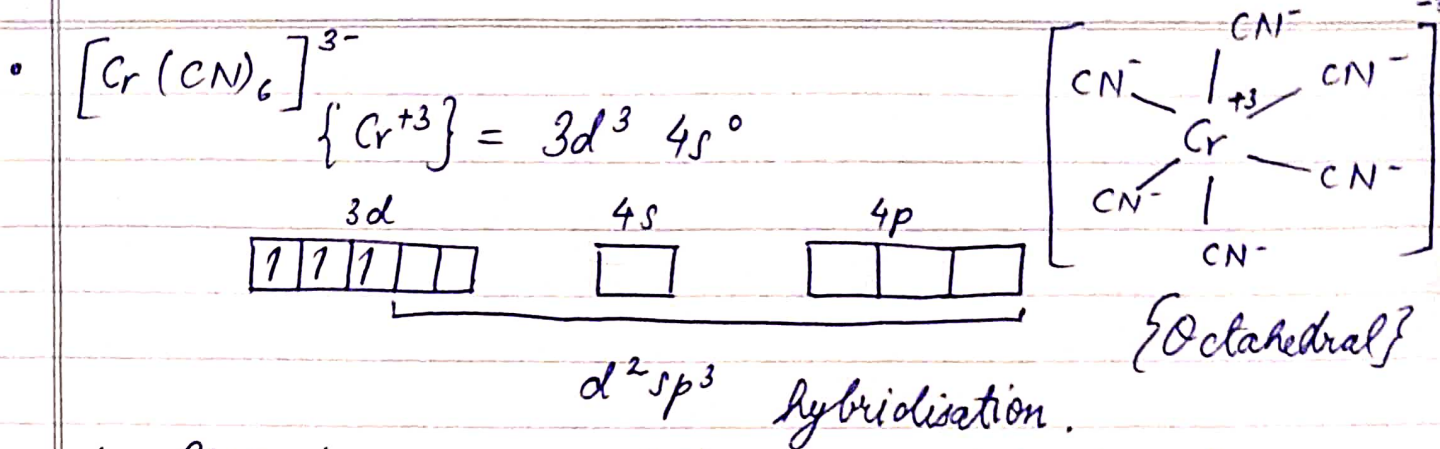 • [Cr (CN)₆]³⁻
{Cr⁺³} = 3d³ 4s⁰
3d 4s 4p
1 1 1
d²sp³ hybridisation.
CN⁻
CN⁻ CN⁻
+3
Cr
CN⁻ CN⁻
CN⁻
{Octahedral}